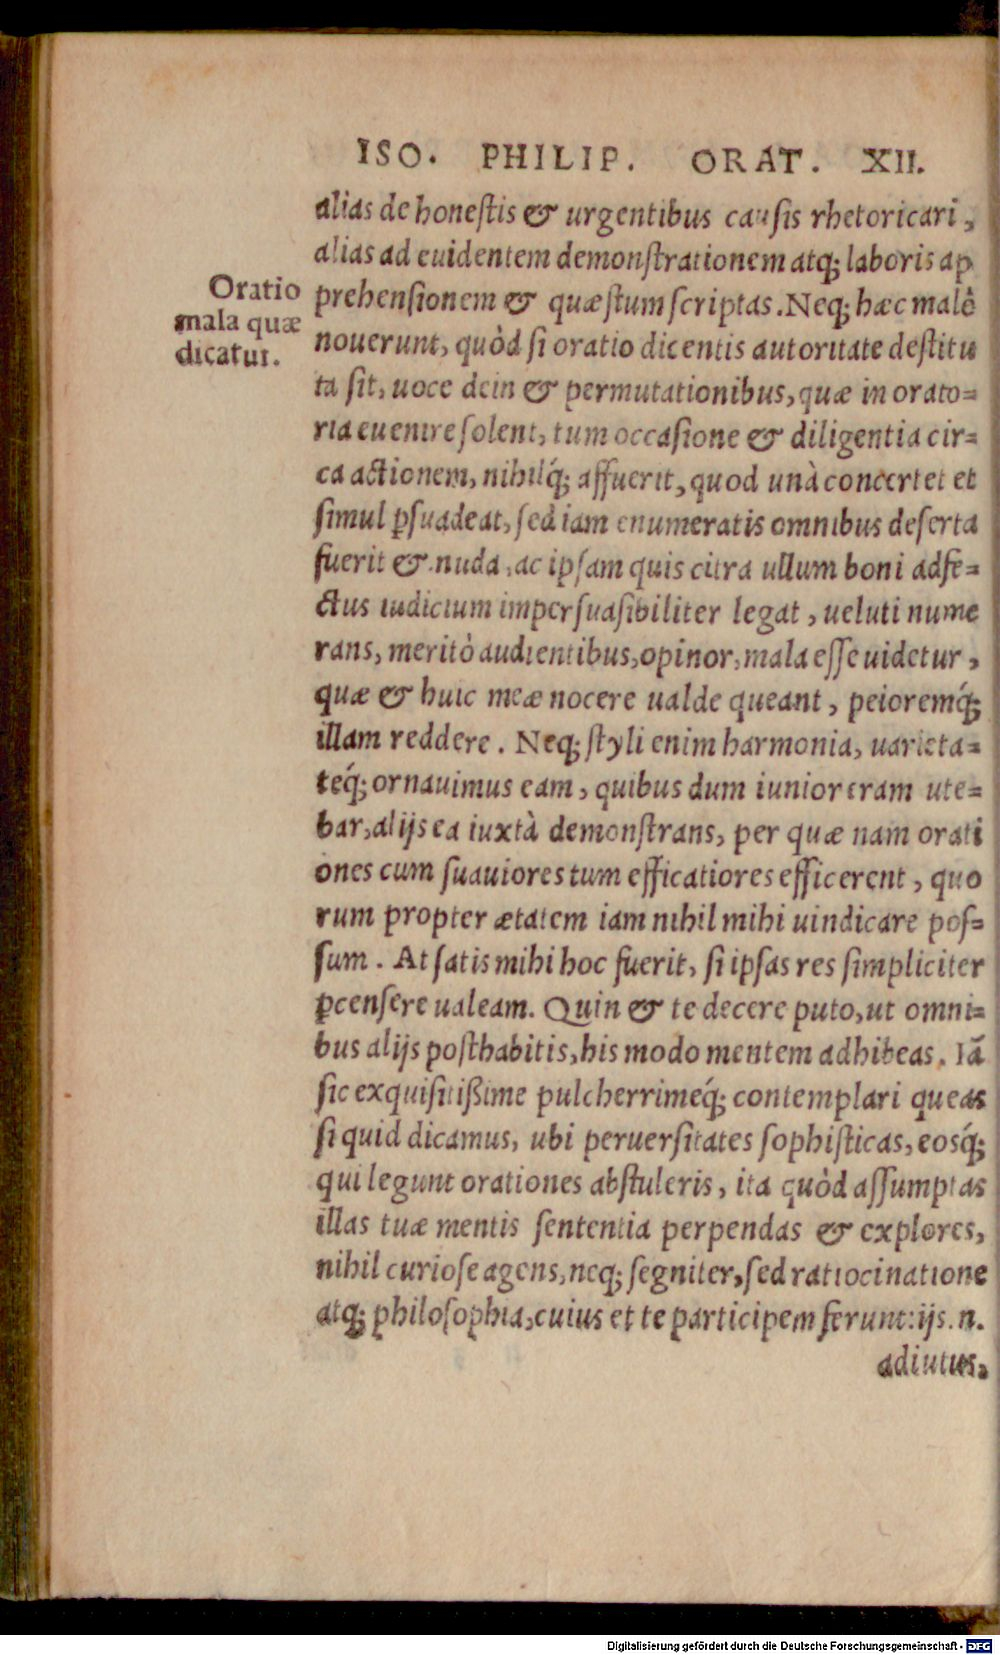 ISO. PHILIP. ORAT. XII.
alias de honeſtis & urgentibus cauſis rhetoricari,
alias ad euidentem demonſtrationem atq; laboris ap
prehenſionem & quæſtum ſcriptas. Neq; hæc malè
nouerunt, quòd ſi oratio dicentis autoritate deſtitu
ta ſit, uoce dein & permutationibus, quæ in orato=
ria euenire ſolent, tum occaſione & diligentia cir=
ca actionem, nihilq́; affuerit, quod unà concertet et
ſimul ꝑſuadeat, ſed iam enumeratis omnibus deſerta
fuerit & nuda, ac ipſam quis citra ullum boni adfe=
ctus iudicium imperſuaſibiliter legat, ueluti nume
rans, meritò audientibus, opinor, mala eſſe uidetur,
quæ & huic meæ nocere ualde queant, peioremq́;
illam reddere. Neq; ſtyli enim harmonia, uarieta=
teq́; ornauimus eam, quibus dum iunior eram ute=
bar, alijs ea iuxtà demonſtrans, per quæ nam orati
ones cum ſuauiores tum efficatiores efficerent, quo
rum propter ætatem iam nihil mihi uindicare poſ=
ſum. At ſatis mihi hoc fuerit, ſi ipſas res ſimpliciter
ꝑcenſere ualeam. Quin & te decere puto, ut omni=
bus alijs poſthabitis, his modo mentem adhibeas. Iā
ſic exquiſitißime pulcherrimeq́; contemplari queas
ſi quid dicamus, ubi peruerſitates ſophiſticas, eosq́;
qui legunt orationes abſtuleris, ita quòd aſſumptas
illas tuæ mentis ſententia perpendas & explores,
nihil curioſe agens, neq; ſegniter, ſed ratiocinatione
atq; philoſophia, cuius et te participem ferunt: ijs. n.
adiutus.
Oratio
mala quæ
dicatur.
Digitalisierung gefördert durch die Deutsche Forschungsgemeinschaft - DFG